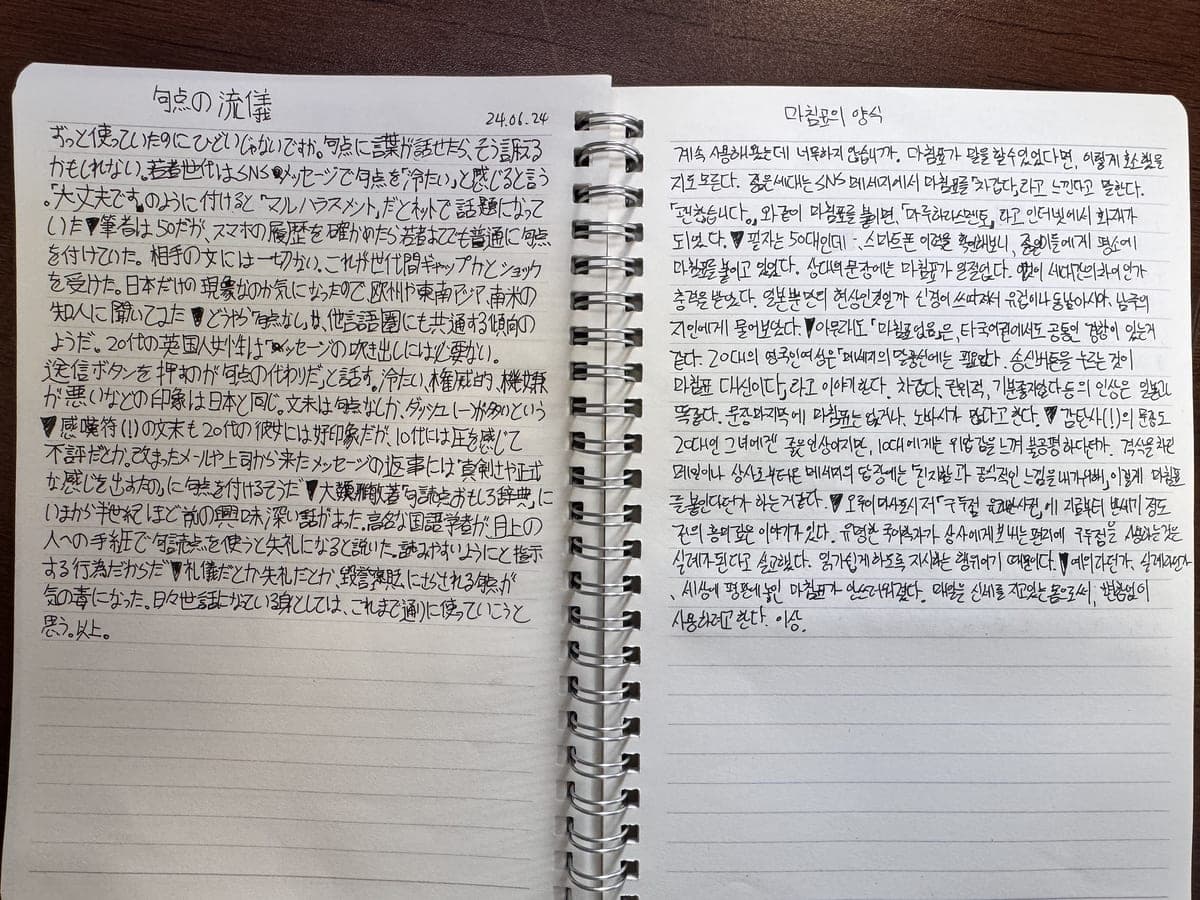 句点の流儀
24.06.24
ずっと使っていたのにひどいじゃないですか。句点に言葉が話せたら、そう訴える
かもしれない。若者世代はSNSメッセージで句点を「冷たい」と感じると言う
。「大丈夫です。」のように付けると「マルハラスメント」だとネットで話題になって
いた▼筆者は50だが、スマホの履歴を確かめたら若者はとても普通に句点
を付けていた。相手の文には一切ない。これが世代間ギャップかとショック
を受けた。日本だけの現象なのか気になったので、欧州や東南アジア、南米の
知人に聞いてみた▼どうやら「句点なし」は、他言語圏にも共通する傾向の
ようだ。20代の英国人女性は「メッセージの吹き出しには必要ない。
送信ボタンを押すのが句点の代わりだ」と話す。冷たい、権威的、機嫌
が悪いなどの印象は日本と同じ。文末は句点なしか、ダッシュ(ー)が多いという
▼感嘆符(!)の文末も20代の彼女には好印象だが、10代には圧を感じて
不評だとか。改まったメールや上司から来たメッセージの返事には「真剣さや正式
な感じを出すため」に句点を付けるそうだ▼大類雅敏著「句読点おもしろ辞典」に
いまから半世紀ほど前の興味深い話があった。高名な国語学者が、目上の
人への手紙で句読点を使うと失礼になると説いた。読みやすいようにと指示
する行為だからだ▼礼儀だとか失礼だとか、毀誉褒貶にさらされる句点が
気の毒になった。日々世話になっている身としては、これまで通りに使っていこうと
思う。以上。
마침표의 양식
계속 사용해왔는데 너무하지 않습니까. 마침표가 말을 할 수 있었다면, 이렇게 호소했을
지도 모른다. 젊은세대는 SNS 메세지에서 마침표를 「차갑다」라고 느낀다고 말한다.
「괜찮습니다。」와 같이 마침표를 붙이면, 「마루하라스멘토」라고 인터넷에서 화제가
되었다.▼필자는 50대인데 스마트폰 이력을 확인해보니, 젊은이들에게 평소에
마침표를 붙이고 있었다. 상대의 문장에는 마침표가 일절없다. 이 세대간의 차이인가
충격을 받았다. 일본뿐만의 현상인것일까 신경이 쓰여져서 유럽이나 동남아시아, 남미의
지인에게 물어보았다.▼아무래도 「마침표없음」은, 타국어권에서도 공통의 경향이 있는거
같다. 20대의 영국인여성은 「메세지의 말풍선에는 필요없다. 송신버튼을 누르는 것이
마침표 대신이다」라고 이야기한다. 차갑다, 권위적, 기분좋지않다 등의 인상은 일본과
똑같다. 문장 마지막에 마침표는 없거나, 노바시가 많다고 한다.▼감탄사(!)의 문장도
20대인 그녀에겐 좋은 인상이지만, 10대에게는 위압감을 느껴 불공평하다던가. 격식을 차린
메일이나 상사로부터온 메세지의 답장에는 「진지함과 공식적인 느낌을 내기위해」이렇게 마침표
를 붙인다던가 하는거같다.▼오루이 마사토시 저 「구두점 유쾌한사전」에 지금부터 반세기 정도
전의 흥미깊은 이야기가 있다. 유명한 국어학자가 상사에게 보내는 편지에 구두점을 사용하는것은
실례가 된다고 설교했다. 읽기쉽게 하도록 지시하는 행위이기 때문이다.▼예의라던가, 실례라던가
, 세상에 평판에 놓인 마침표가 안쓰러워졌다. 매일을 신세를 지고있는 몸으로써, 변함없이
사용하려고 한다. 이상.